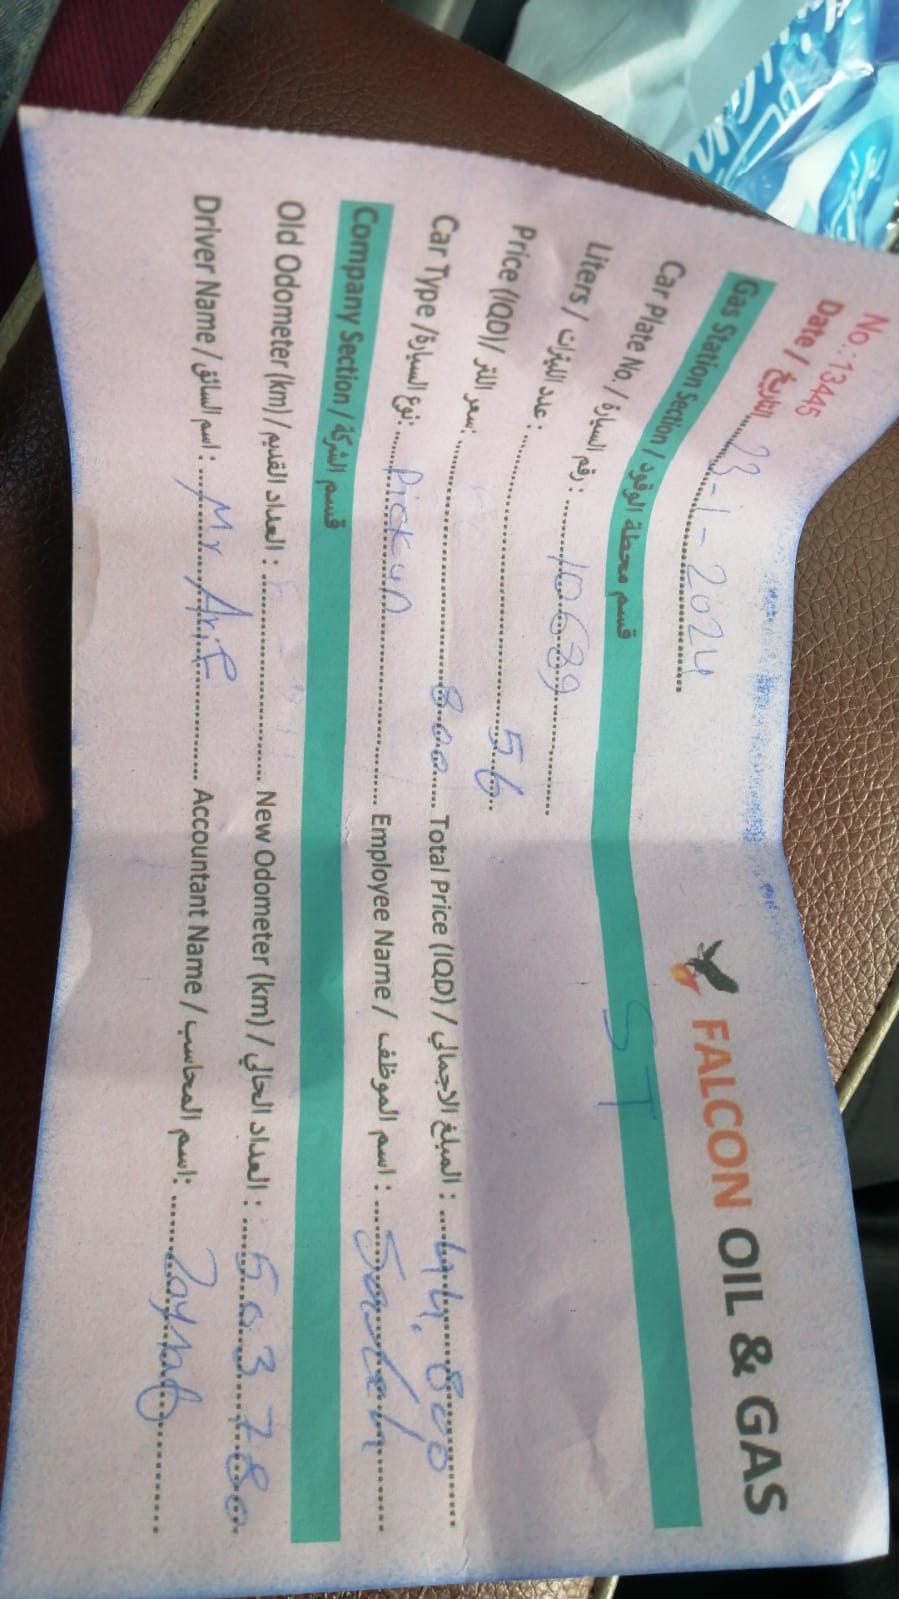 No.: 13445
FALCON OIL & GAS
Date / التاريخ 23-1-2024
Gas Station Section / قسم محطة الوقود
ST
Car Plate No. / رقم السيارة : 10689
Liters / عدد الليترات : 56
Price (IQD)/ سعر اللتر: 800 Total Price (IQD) / المبلغ الاجمالي : 44.800
Car Type /نوع السيارة: Pickup Employee Name / اسم الموظف :
Company Section / قسم الشركة
Old Odometer (km) / العداد القديم : New Odometer (km) / العداد الحالي : 503780
Driver Name / اسم السائق : Mr Arif Accountant Name / اسم المحاسب: